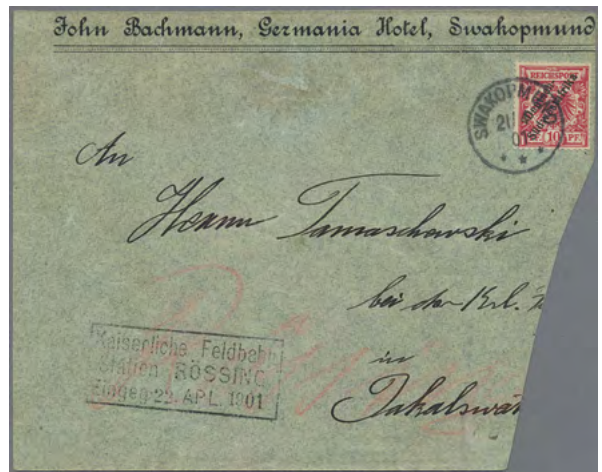 John Bachmann, Germania Hotel, Swakopmund
REICHSPOST
SWAKOPMUND
10 PF
01
An
Herrn Tamaschewski
bei der Krl.
in
Jakalswa
Kaiserliche Feldbahn
Station RÖSSING
Eingeg. 22. APL. 1901